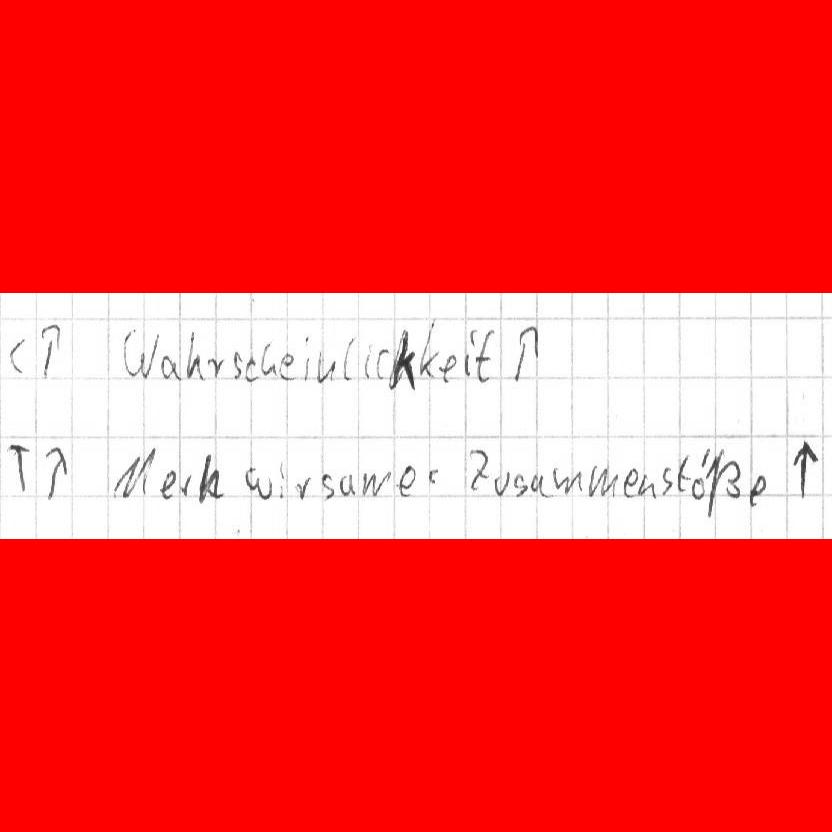 c↑ Wahrscheinlickkeit ↑
T↑ Merk wirsamer Zusammenstöße ↑